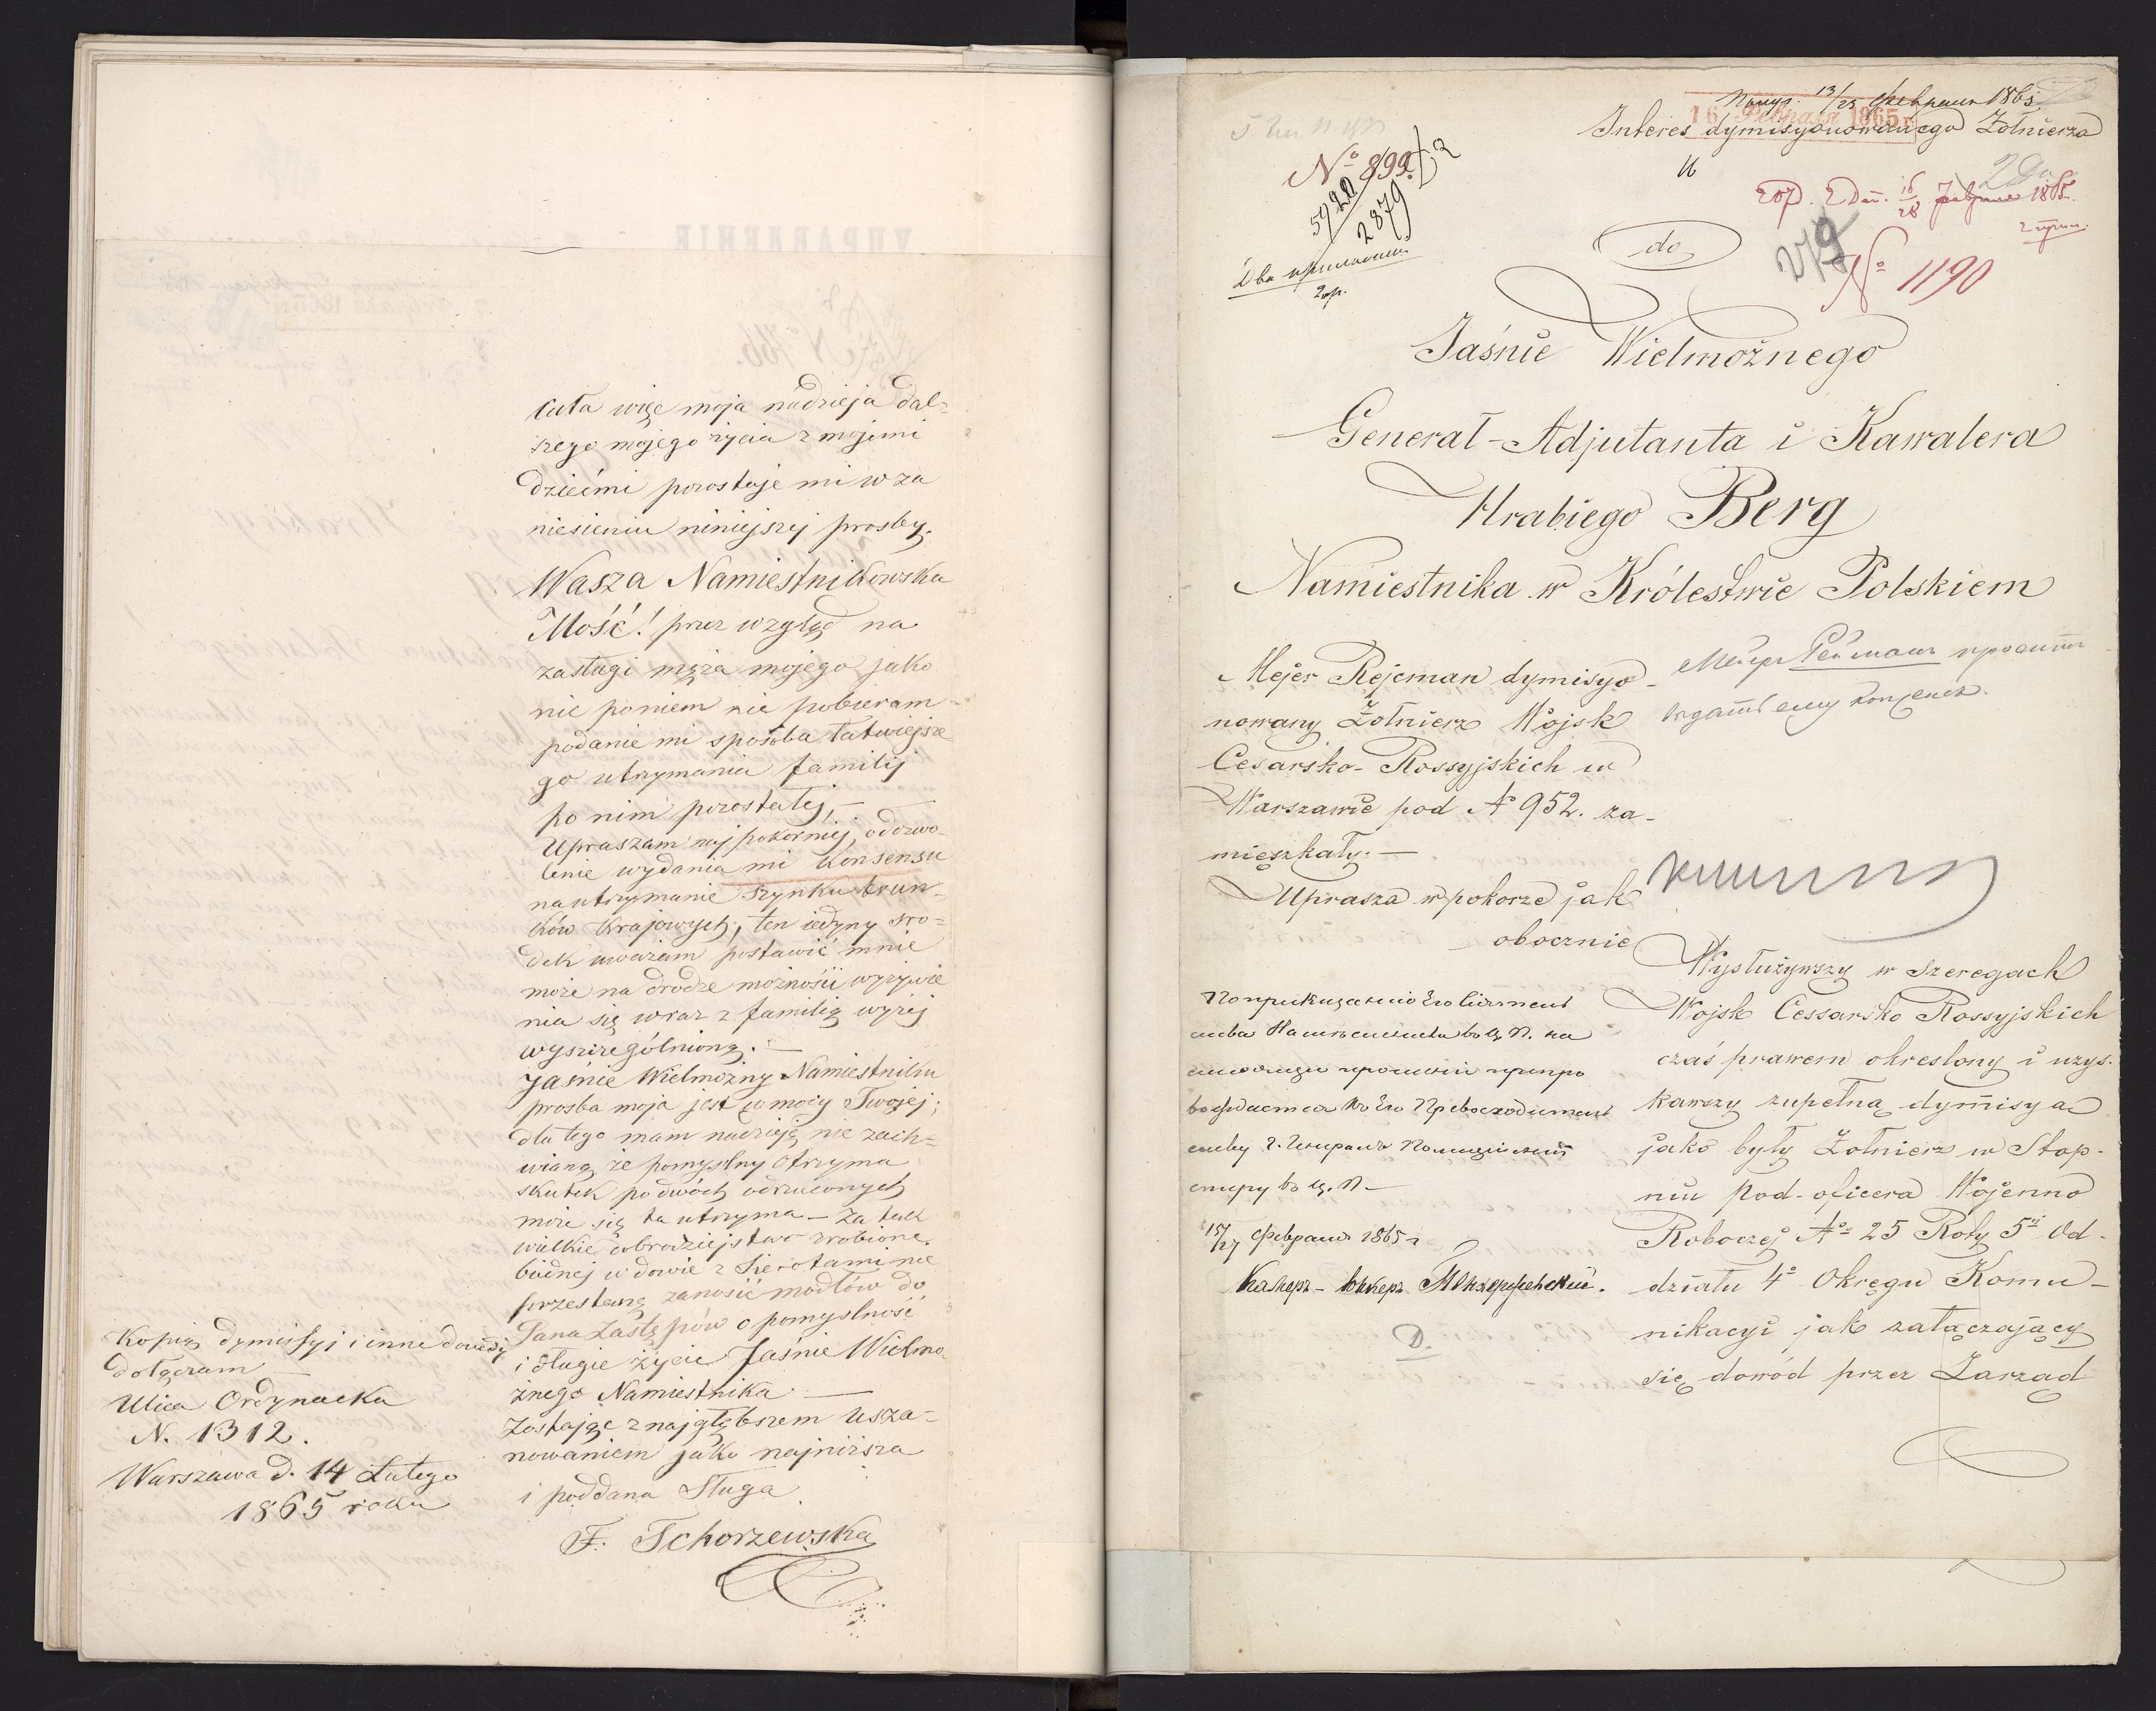 cała więc moja nadzieja dal=
szego mojego życia z mojemi
dziećmi pozostaje mi w za
niesieniu niniejszej prosby.
Wasza Namiestnikowska
Mość! przez wzgląd na
zasługi męża mojego jako
nic po niem nie pobieram
podanie mi sposoba łatwiejsze
go utrzymania familij
po nim pozostałej, —
Upraszam najpokorniej, o dozwo-
lenie wydania mi konsensu
na utrzymanie szynku trun-
ków krajowych, ten iedyny sro=
dek uważam postawić mnie
może na drodze możności wyżywie
nia się wraz z familią wyżej
wyszczególnioną. —
Jaśnie Wielmożny Namiestniku
prosba moja jest w mocy Twojej;
dla tego mam nadzieję nie zach=
wianą że pomyslny otrzyma
skutek po dwóch odrzuconych
może się ta utrzyma — Za tak
wielkie dobrodziejstwo zrobione
biédnej wdowie z Sierotami nie
przestanę zanosić modłów do
Pana Zastępów o pomyslność
i długie życie Jaśnie Wielmo-
żnego Namiestnika —
Zostając z najgłębszem usza=
nowaniem jako najniższa
i poddana Sługa
F. Tchorzewska
Kopią dymissyj i inne dowody
dołączam —
Ulica Ordynacka
N. 1312.
Warszawa d. 14 Lutego
1865 roku
13/25 Февраля 1865
16 Февраля 1865 г.
Interes dymisyonowanego Żołnierza
№ 899.
5920
2879
279
16/28 1865
№ 1190
do
Jaśnie Wielmożnego
Generał-Adjutanta i Kawalera
Hrabiego Berg
Namiestnika w Królestwie Polskiem
Mejer Rejeman dymisyo-
nowany Żołnierz Wojsk
Cesarsko-Rossyjskich w
Warszawie pod № 952. za-
mieszkały. —
Uprasza w pokorze jak
obocznie
Мейеръ Рейманъ проситъ
выдать ему консенсъ.
Wysłużywszy w Szeregach
Wojsk Cessarsko Rossyjskich
czas prawem okreslony i uzys-
kawszy zupełną dymisyą
jako były Żołnierz w Stop-
niu Pod-oficera Wojenno
Roboczej № 25 Roty 5ej Od-
działu 4o Okręgu Komu-
nikacyi jak załączający
się dowód przez Zarząd
По приказанію Его Сіятель
ства Намѣстника въ Ц. П. на
стоящее прошеніе препро
вождается къ Его Превосходитель
ству Г. Генералъ Полицiймей
стеру въ Ц. П. —
15/27 Февраля 1865 г.